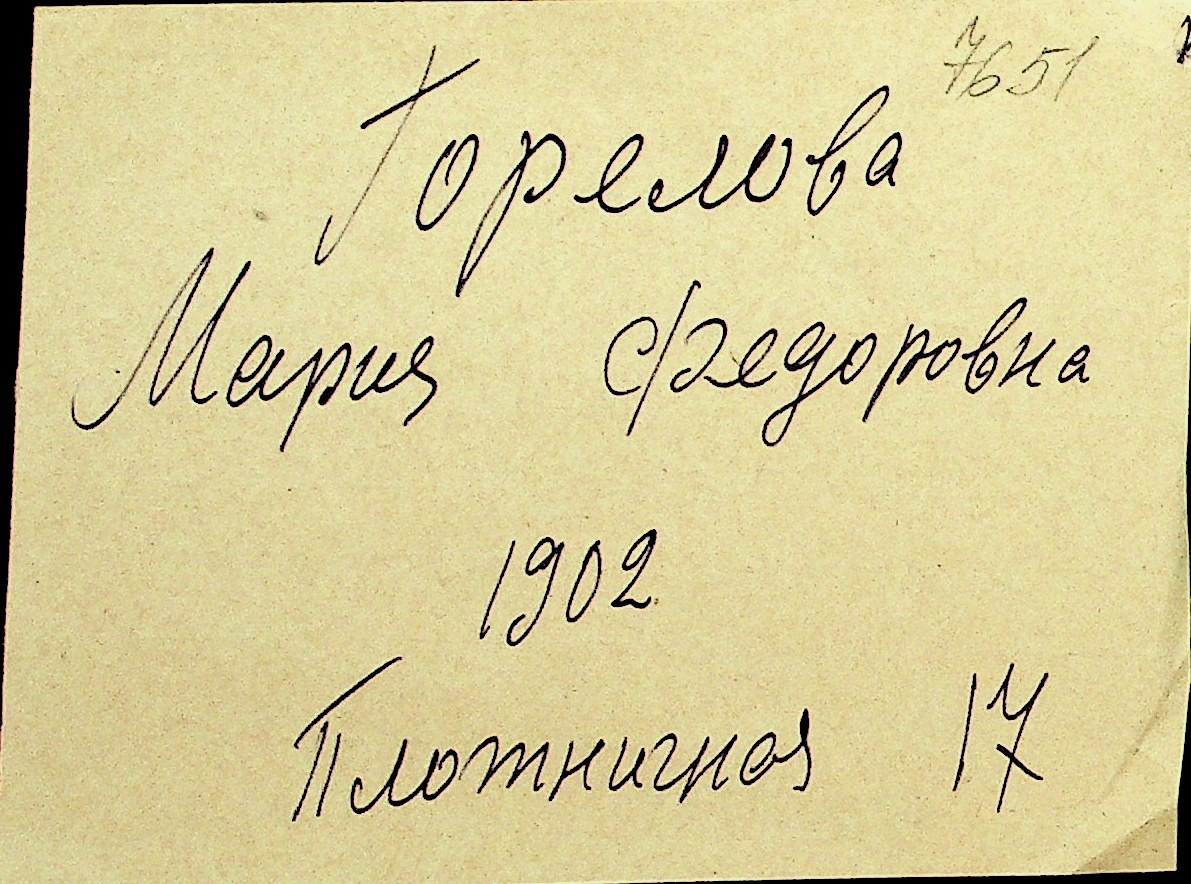 7651
Горелова
Мария Федоровна
1902
Плотничная 17